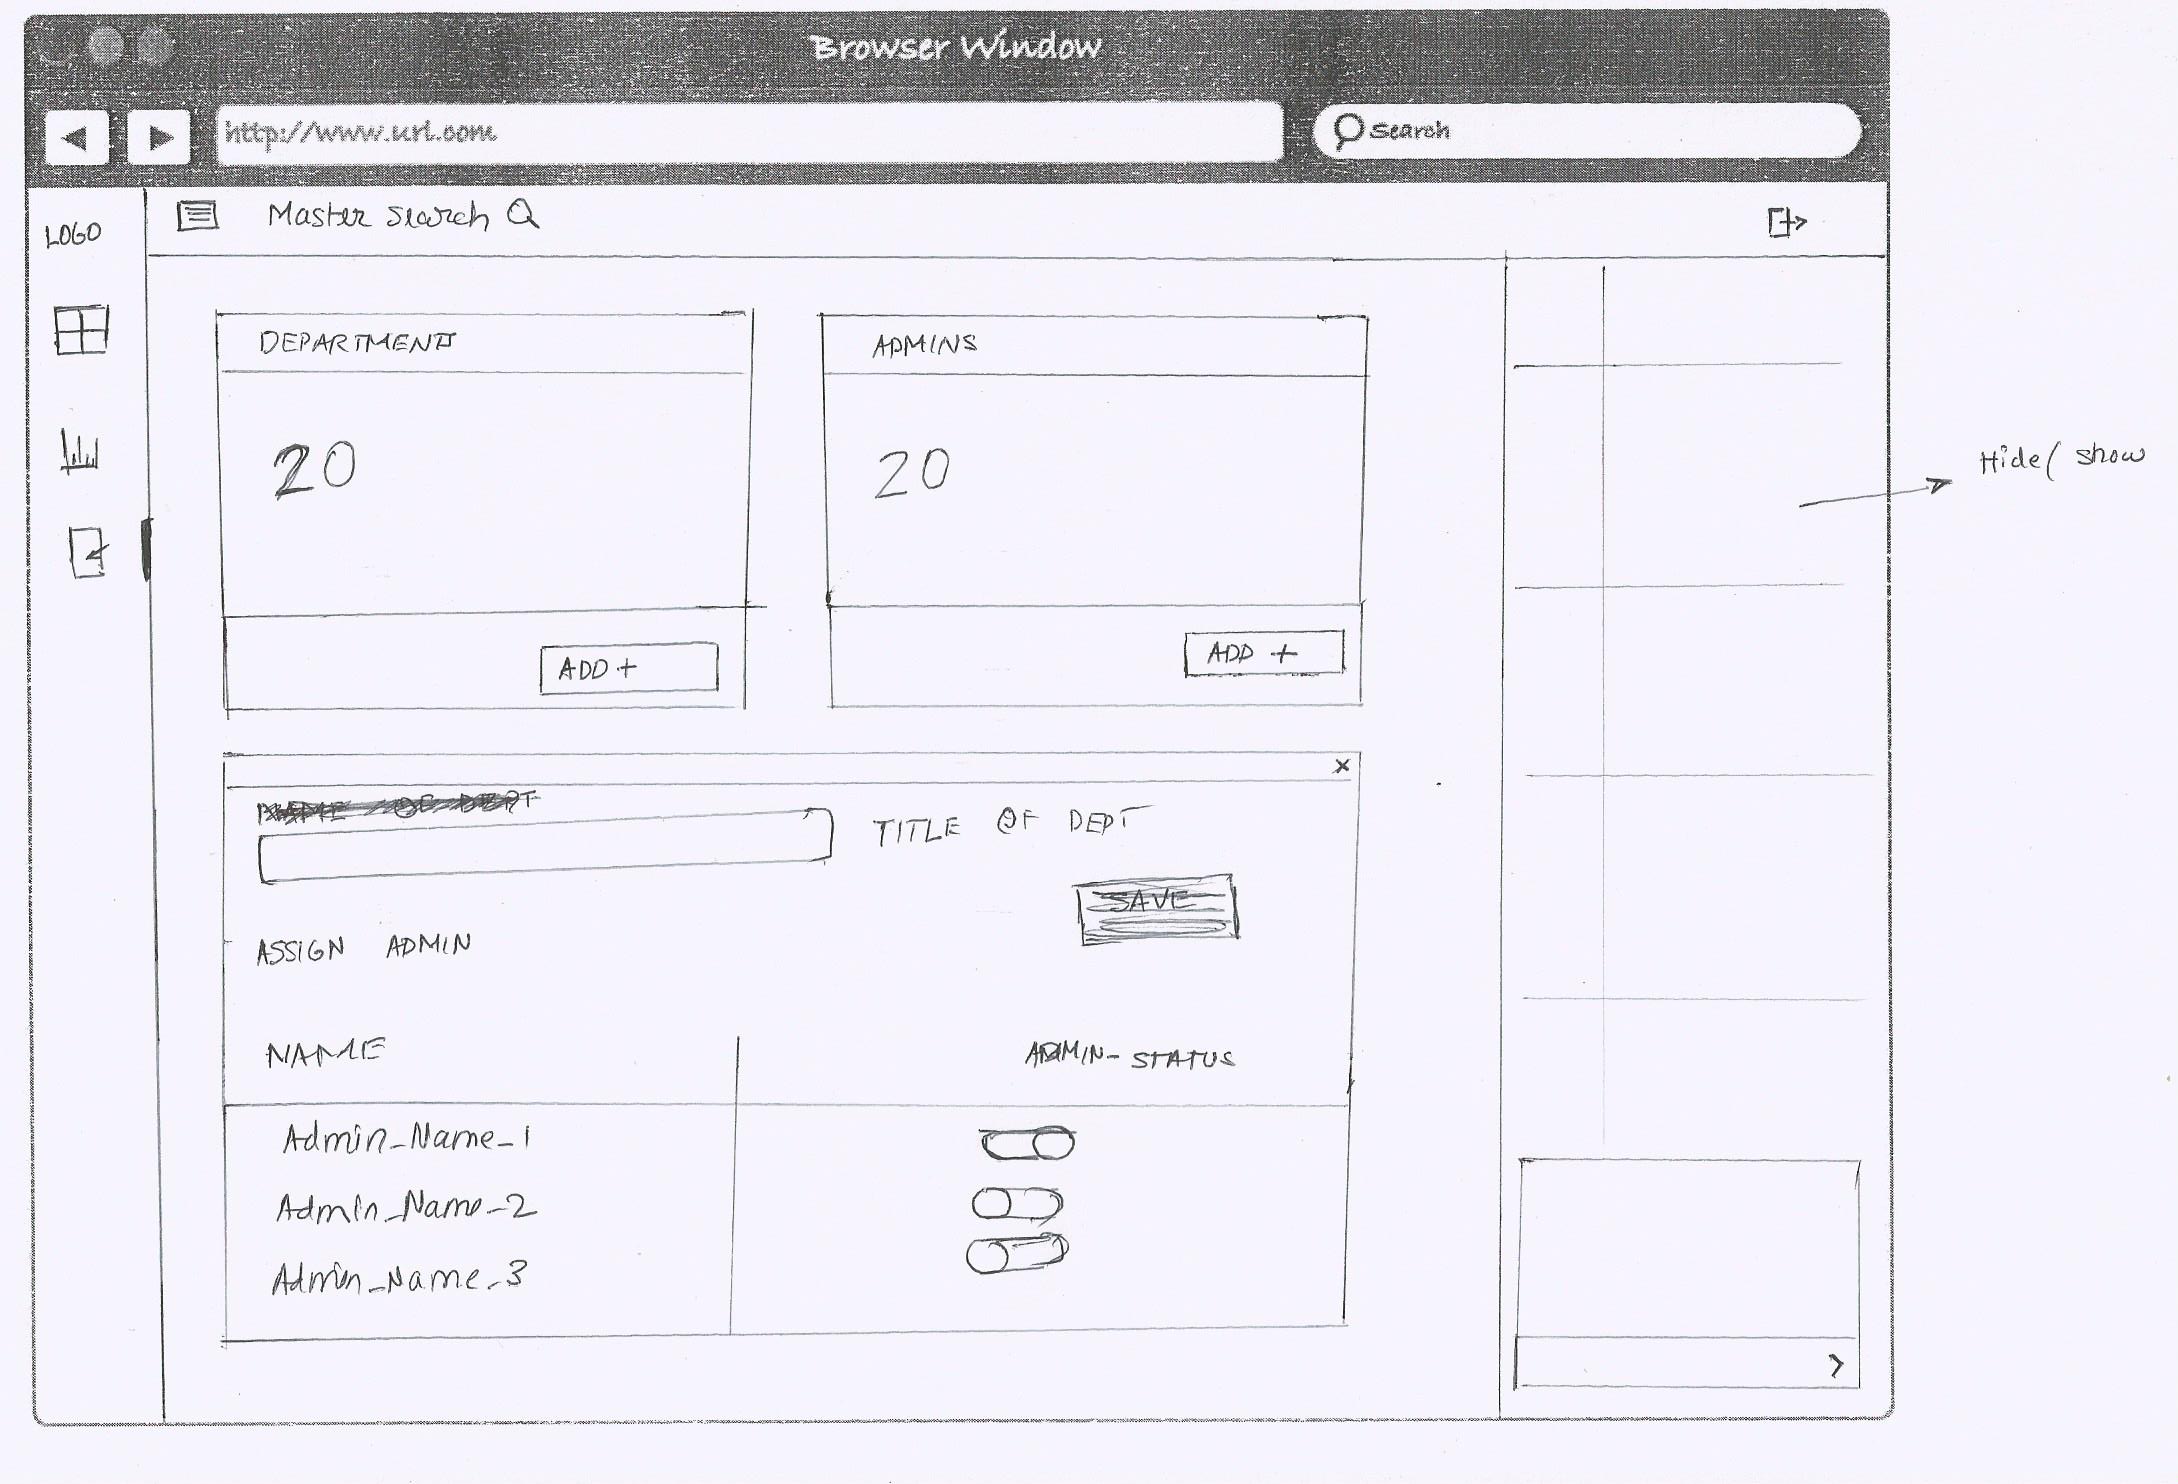 Browser Window
http://www.url.com
Search
LOGO
Master search
Hide( show
DEPARTMENT
ADMINS
20
20
ADD +
ADD +
x
NAME OF DEPT
TITLE OF DEPT
SAVE
ASSIGN ADMIN
NAME
ADMIN- STATUS
Admin_Name_1
Admin_Name_2
Admin_Name_3